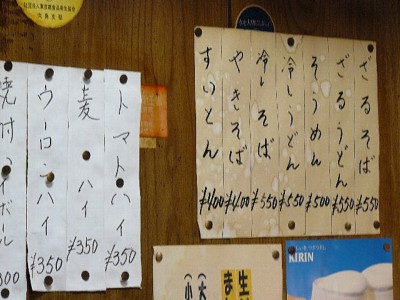 ざるそば ¥550
ざるうどん ¥550
そうめん ¥500
冷しうどん ¥550
冷しそば ¥550
やきそば ¥400
すいとん ¥400
トマトハイ ¥350
麦ハイ ¥350
ウーロンハイ ¥350
焼酎ハイボール
KIRIN